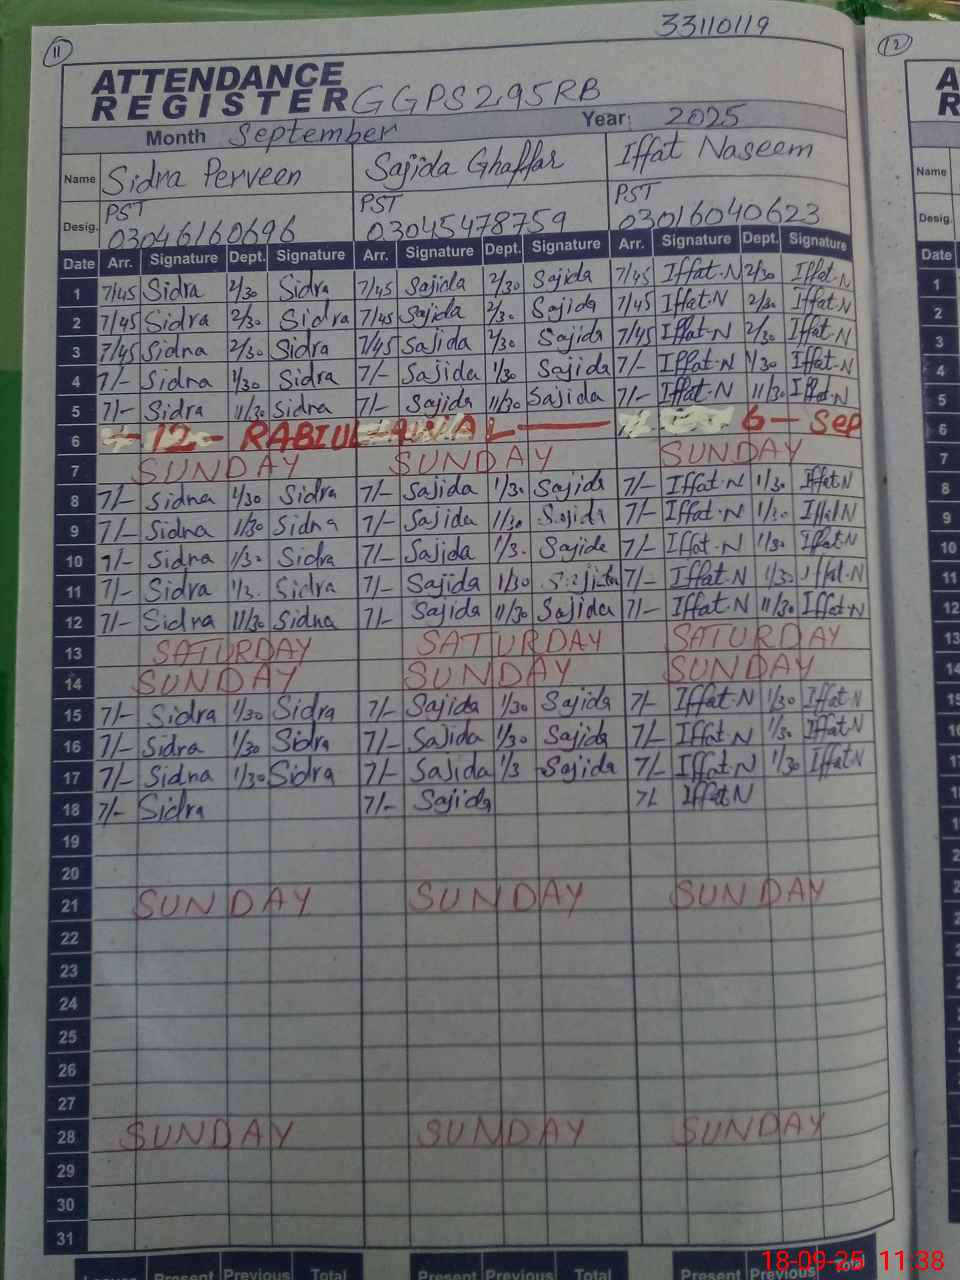 33110119
11
12
ATTENDANCE
REGISTER GGPS 295RB
Month September Year: 2025
Name Sidra Perveen Sajida Ghaffar Iffat Naseem
Desig. PST 03046160696 PST 03045478759 PST 03016040623
Date Arr. Signature Dept. Signature Arr. Signature Dept. Signature Arr. Signature Dept. Signature
1 7/45 Sidra 2/30 Sidra 7/45 Sajida 2/30 Sajida 7/45 Iffat-N 2/30 Iffat-N
2 7/45 Sidra 2/30 Sidra 7/45 Sajida 2/30 Sajida 7/45 Iffat-N 2/30 Iffat-N
3 7/45 Sidra 2/30 Sidra 7/45 Sajida 2/30 Sajida 7/45 Iffat-N 2/30 Iffat-N
4 7/- Sidra 1/30 Sidra 7/- Sajida 1/30 Sajida 7/- Iffat-N 1/30 Iffat-N
5 7/- Sidra 11/30 Sidra 7/- Sajida 11/30 Sajida 7/- Iffat-N 11/30 Iffat-N
6 -12- RABIUL AWAL 6- Sep
7 SUNDAY SUNDAY SUNDAY
8 7/- Sidra 1/30 Sidra 7/- Sajida 1/30 Sajida 7/- Iffat-N 1/30 Iffat-N
9 7/- Sidra 1/30 Sidra 7/- Sajida 1/30 Sajida 7/- Iffat-N 1/30 Iffat N
10 7/- Sidra 1/30 Sidra 7/- Sajida 1/3. Sajida 7/- Iffat-N 1/30 Iffat-N
11 7/- Sidra 1/3. Sidra 7/- Sajida 1/30 Sajida 7/- Iffat-N 1/30 Iffat-N
12 7/- Sidra 11/30 Sidra 7/- Sajida 11/30 Sajida 7/- Iffat-N 11/30 Iffat-N
13 SATURDAY SATURDAY SATURDAY
14 SUNDAY SUNDAY SUNDAY
15 7/- Sidra 1/30 Sidra 7/- Sajida 1/30 Sajida 7/- Iffat-N 1/30 Iffat-N
16 7/- Sidra 1/30 Sidra 7/- Sajida 1/30 Sajida 7/- Iffat-N 1/30 Iffat-N
17 7/- Sidra 1/30 Sidra 7/- Sajida 1/3 Sajida 7/- Iffat-N 1/30 Iffat-N
18 7/- Sidra 7/- Sajida 7/- Iffat N
19
20
21 SUNDAY SUNDAY SUNDAY
22
23
24
25
26
27
28 SUNDAY SUNDAY SUNDAY
29
30
31
Present Previous Total Present Previous Total Present Previous Total
Name
Desig.
Date
1
2
3
4
5
6
7
8
9
10
11
12
13
14
15
18-09-25 11:38